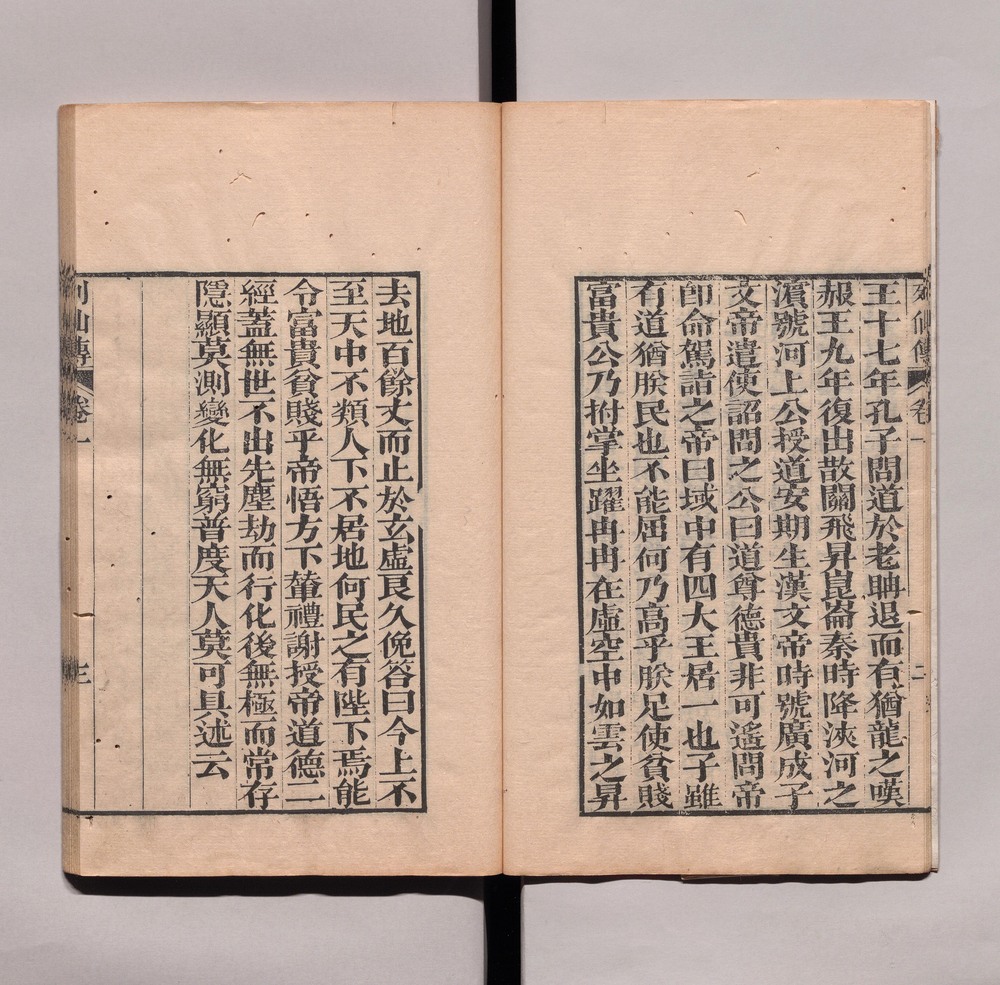 列仙傳 卷一 二
王十七年孔子問道於老聃退而有猶龍之嘆
赧王九年復出散關飛昇崑崙秦時降浹河之
濱號河上公授道安期生漢文帝時號廣成子
文帝遣使詔問之公曰道尊德貴非可遙問帝
即命駕詣之帝曰域中有四大王居一也子雖
有道猶朕民也不能屈何乃高乎朕足使貧賤
富貴公乃拊掌坐躍冉冉在虛空中如雲之昇
去地百餘丈而止於玄虛良久俛答曰今上不
至天中不類人下不居地何民之有陛下焉能
令富貴貧賤乎帝悟方下輦禮謝授帝道德二
經蓋無世不出先塵劫而行化後無極而常存
隱顯莫測變化無窮普度天人莫可具述云
列仙傳 卷一 三